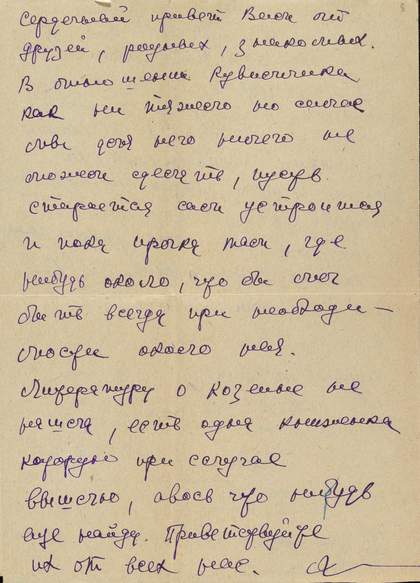 Сердечный привет Вам от
друзей, родных, знакомых.
В отношении Рувимчика
как ни тяжело но сейчас
мы для него ничего не
можем сделать, пусть
старается сам устроится
и пока прочка там, где
нибудь около, что бы смог
быть всегда при необходи-
мости около нея.
Литературу о козелке не
нашла, есть одна книженка
которую при случае
вышлю, авось что нибудь
еще найду. Приветствуйте
их от всех нас.